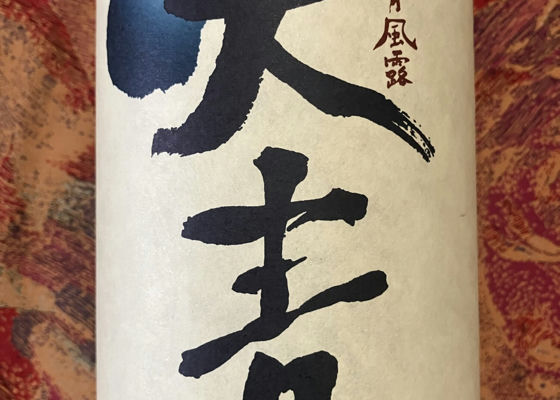 風露
天青